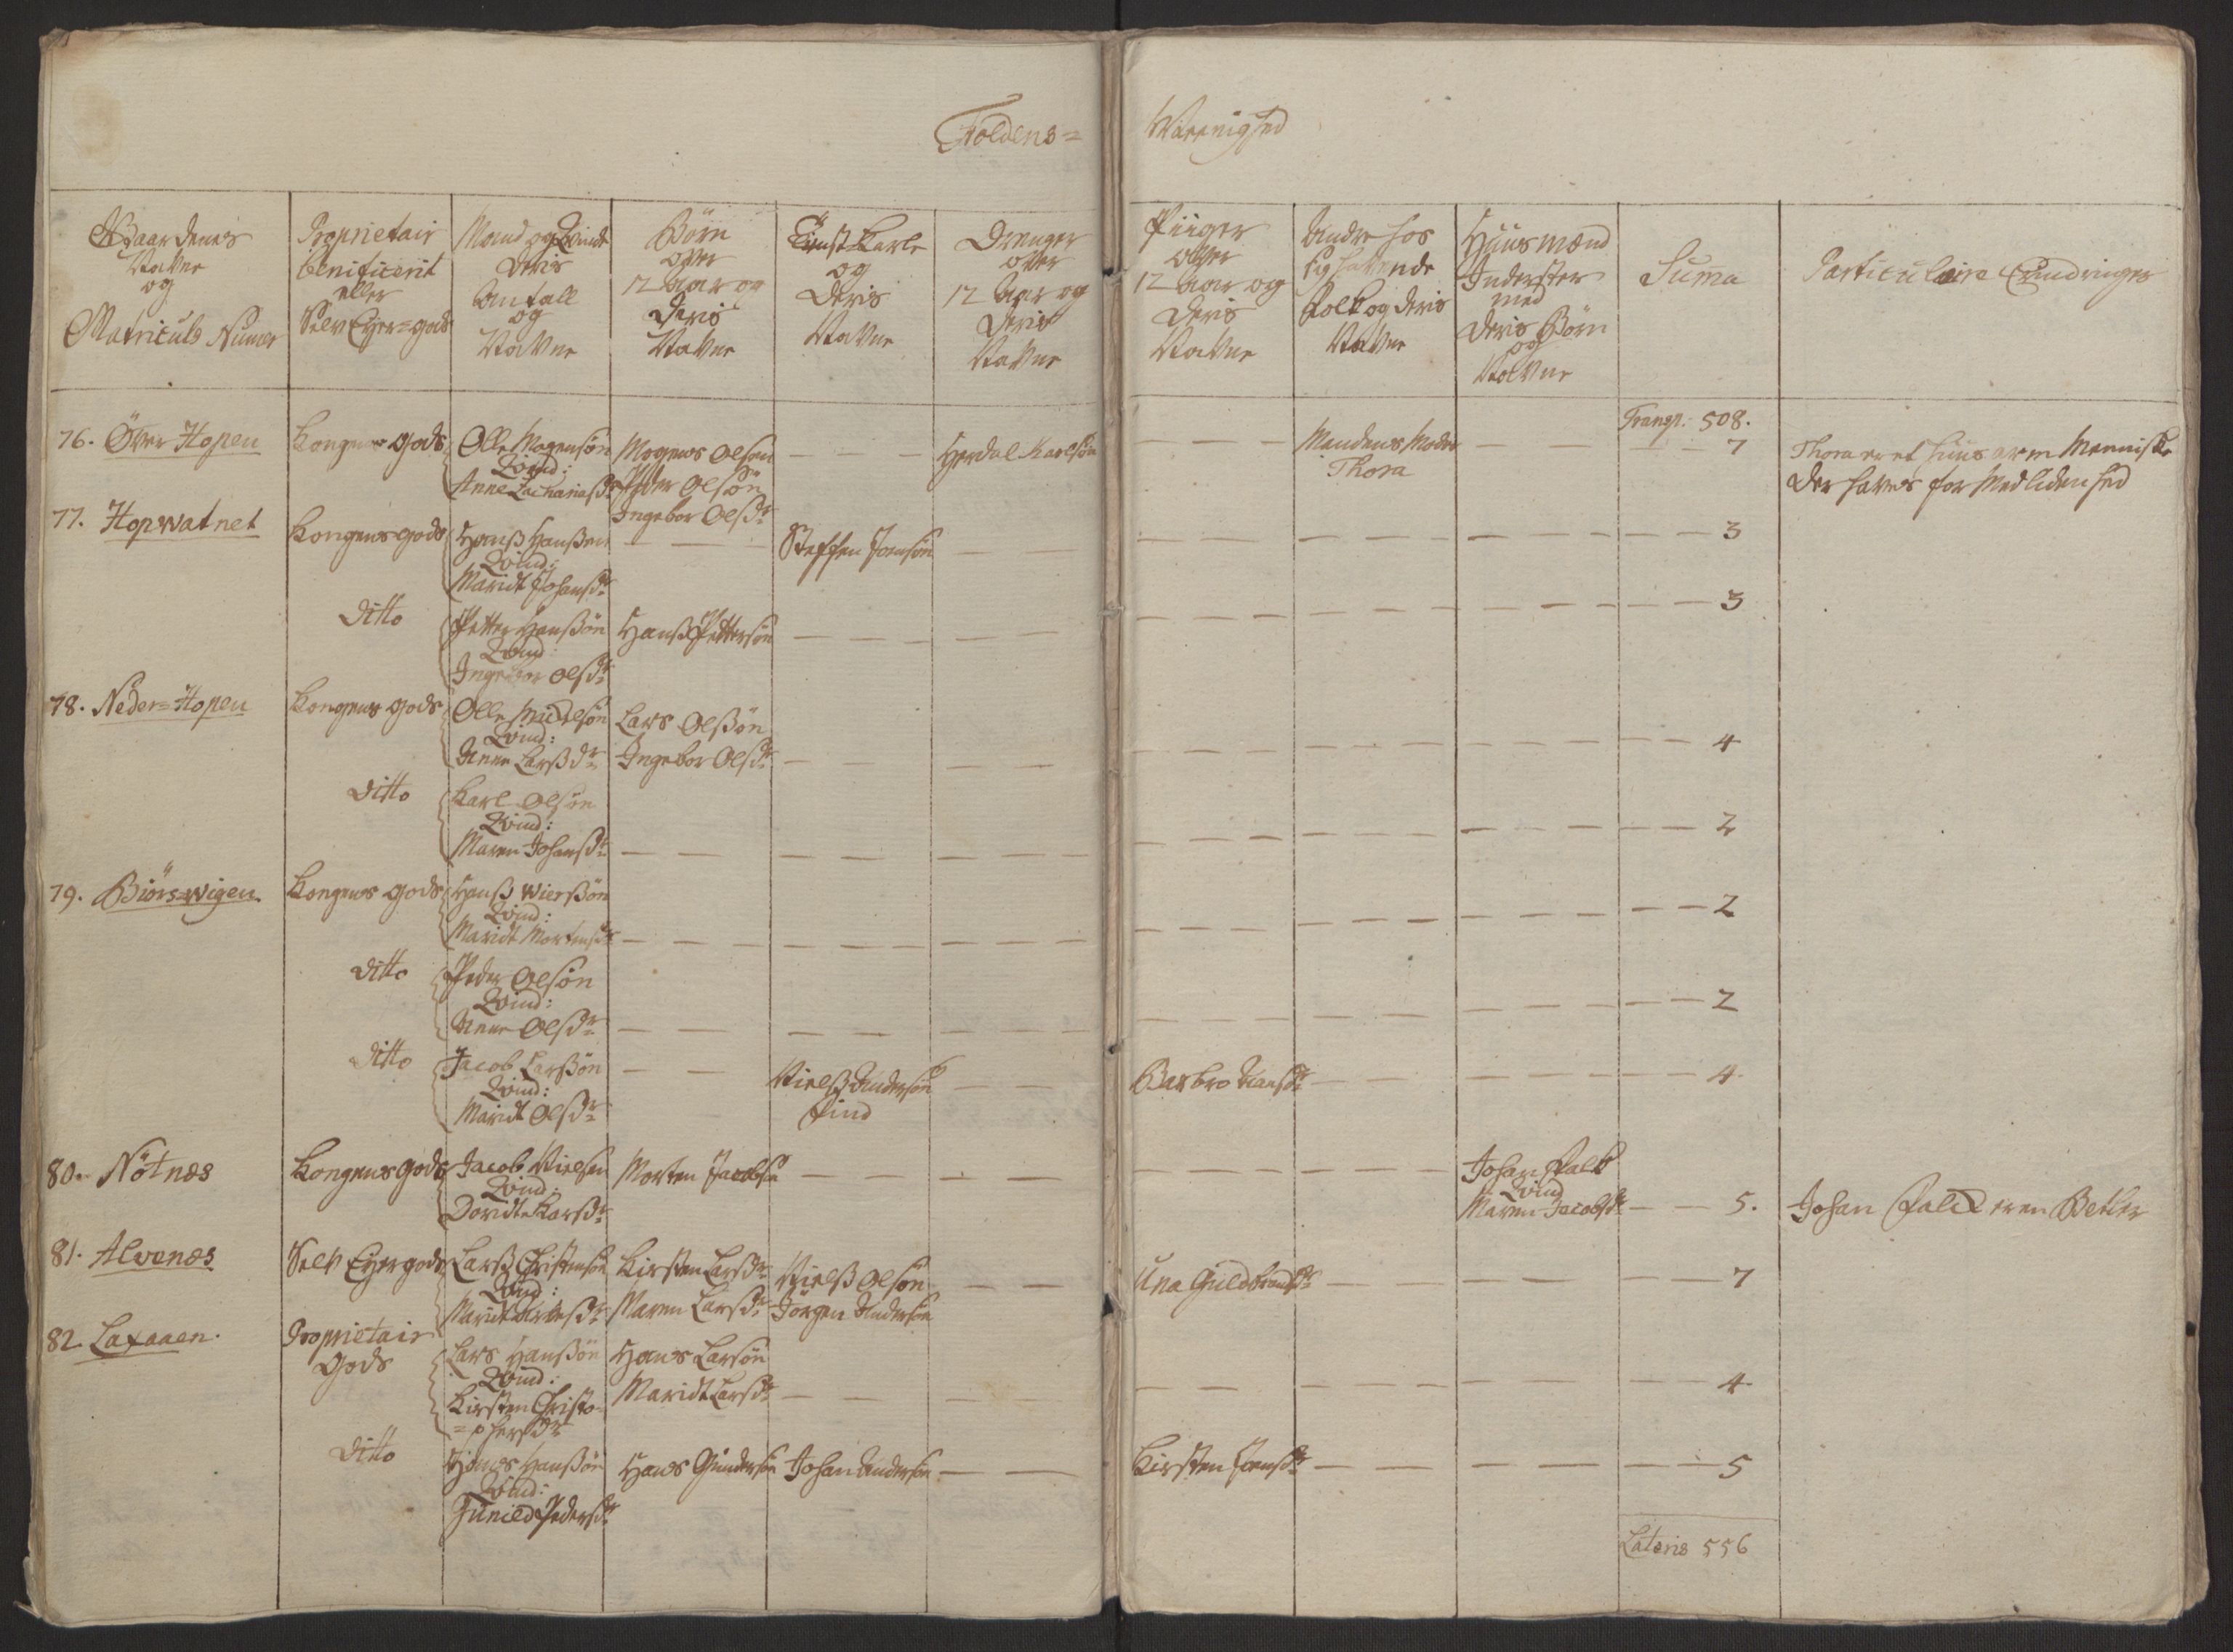 Foldens= Menighed
Gaardenes
Navne
og
Matriculs Numer
Proprietair
benificerit
eller
Selv Eyer=gods
Mand og Qvinde
Deris
Antall
og
Navne
Börn
over
12 Aar og
Deris
Navne
Tienste Karle
og
Deris
Navne
Drenger
over
12 Aar og
Deris
Navne
Piiger
over
12 Aar og
Deris
Navne
Andre hos
sig havende
Folk og deris
Navne
Huusmænd
Inderster
med
deris Börn
og
Navne
Suma
Particulaire Erindringer
Transp: 508.
76. Över Hopen
Kongens Gods
Olle Mogensøn
Qvind:
Anne Zachariasdr
Mogens Olsøn
Peder Olsøn
Ingebor Olsdr
— — —
Herdal Karlsøn
— — —
Mandens Moder
Thora
— —
7
Thora er et huus arm Menniske
der haves for Medlidenhed
77. Hopwatnet
Kongens gods
Hanss Hanssen
Qvind:
Maridt Johansdr
— — —
Steffen Joensøn
— — —
3
ditto
Petter Hanssøn
Qvind:
Ingebor Olsdr
Hanss Pettersøn
— — —
3
78. Neder=Hopen
Kongens gods
Olle Michelsøn
Qvind:
Anne Larssdr
Lars Olssøn
Ingebor Olsdr
— — —
4
ditto
Karl Olsøn
Qvind:
Maren Johansdr
— — —
2
79. Biörs=wigen
Kongens gods
Hanss Wierssøn
Qvind:
Maridt Mortensdr
— — —
2
ditto
Peder Olsøn
Qvind:
Anne Olsdr
— — —
2
ditto
Jacob Larssøn
Qvind:
Maridt Olsdr
— —
Nielss Andersøn
Find
— —
Barbro Hansdr
— — —
4
80. Nötnæs
Kongens gods
Jacob Nielsen
Qvind:
Dordte Larsdr
Morten Jacobsøn
— — —
Johan Falk
Qvind
Maren Jacobsdr
— — 5.
Johan Falck er en Betler
81. Alvenæs
Selv Eyer gods
Larss Christensøn
Qvind:
Maridt
Kirsten Larsdr
Maren Larsdr
Nielss Olsøn
Jörgen Andersøn
— —
Una Guldbrandsdr
— — —
7
82. Laxaaen.
Proprietair
Gods
Lars Hanssøn
Qvind:
Kirsten Christo-
=phersdr
Hans Larsøn
Maridt Larsdr
— — —
4
ditto
Hans Hanssøn
Qvind:
Gunild Pedersdr
Hans Gundersøn
Johan Andersøn
— —
Kirsten Joensdr
— — —
5
Lateris 556